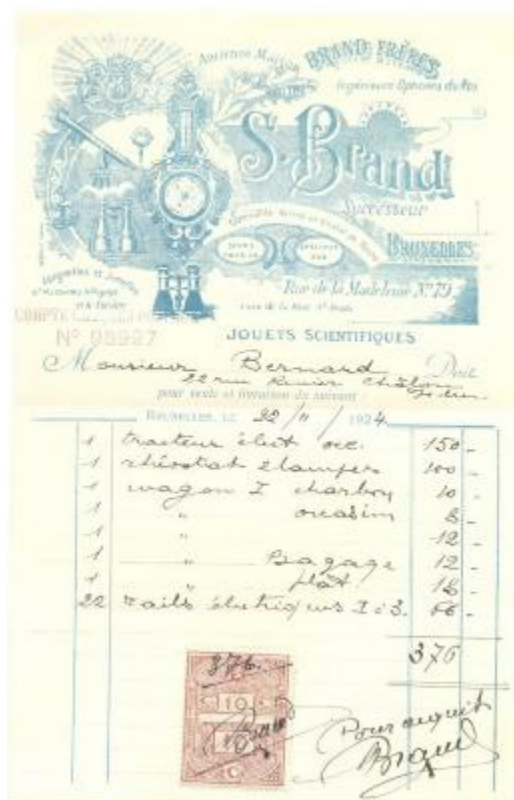 Ancienne Maison BRAND FRÈRES
Ingénieurs Opticiens du Roi
S. Brand
Successeur
BRUXELLES
Rue de la Madeleine N° 79
JOUETS SCIENTIFIQUES
N° 95997
Monsieur Bernard Doit
22 rue Renier Chalon
pour vente et livraison du suivant :
BRUXELLES, LE 22/11/1924
1 tracteur élect occ. 150 -
1 rhéostat 2 lampes 100 -
1 wagon I charbon 10 -
1 " occasion 8 -
1 " 12 -
1 " Bagage 12 -
1 " plat 18 -
22 rails électriques I à 3. 66 -
376
376. -
10
Pour acquit